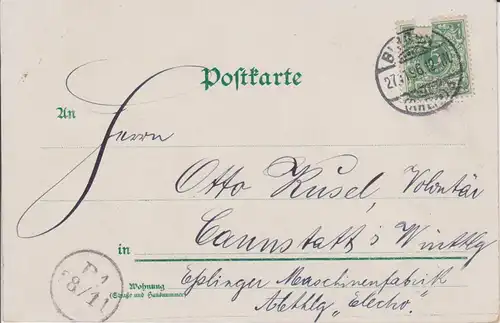 Postkarte
An
Herrn
Otto Kusel, Volontär
in Cannstatt i Württbg
Wohnung
(Straße und Hausnummer)
Eßlinger Maschinenfabrik
Abthlg „Electro".
8/11